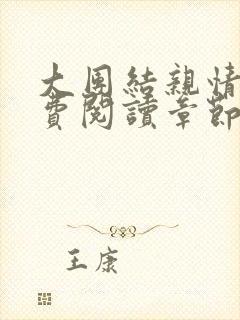 大團結親情
費閱讀章節
王康